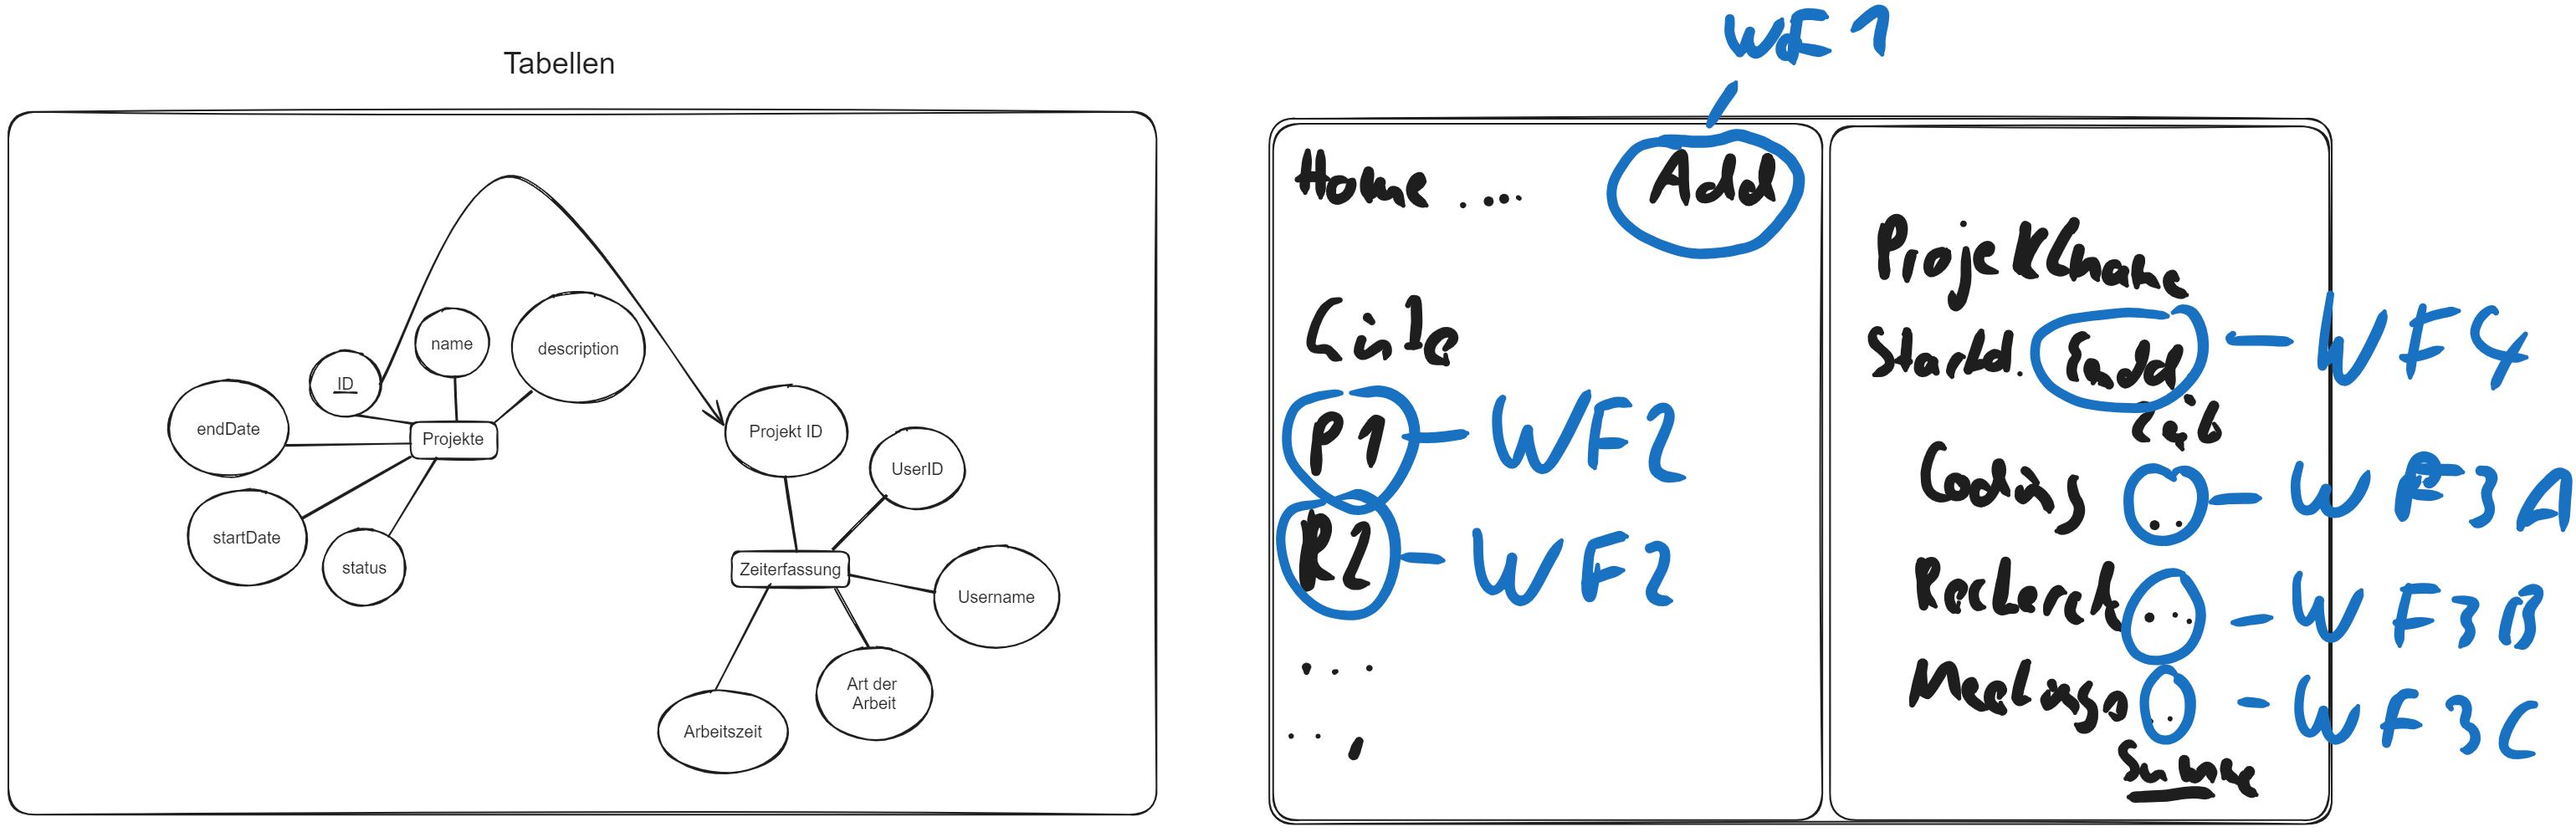 Tabellen
ID
name
description
endDate
Projekte
startDate
status
Projekt ID
UserID
Zeiterfassung
Username
Art der
Arbeit
Arbeitszeit
WF 1
Home .... Add
Liste
P1 - WF2
R2 - WF2
... 
Projektname
Startd. Endd - WF4
Zeit
Coding .. - WF3A
Recherche ... - WF3B
Meetings .. - WF3C
Summe